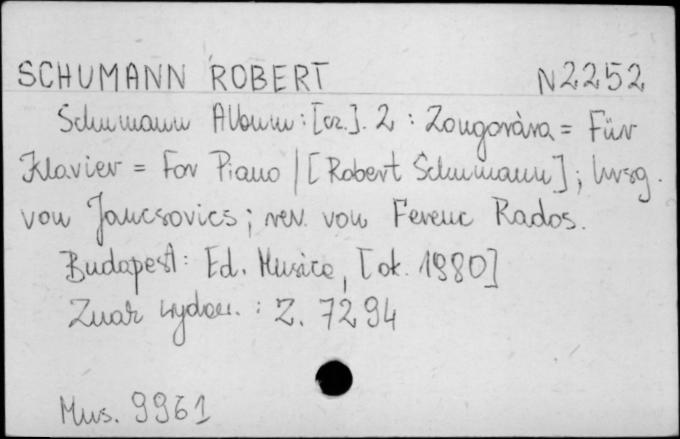 SCHUMANN ROBERT N2252
Schumann Album: [cz.]. 2 : Zongorára = Für
Klavier = For Piano / [Robert Schumann]; hrsg.
von Jancsovics; rev. von Ferenc Rados.
Budapest: Ed. Musica, [ok. 1980]
Znak wydaw. : Z. 7294
Mus. 9961